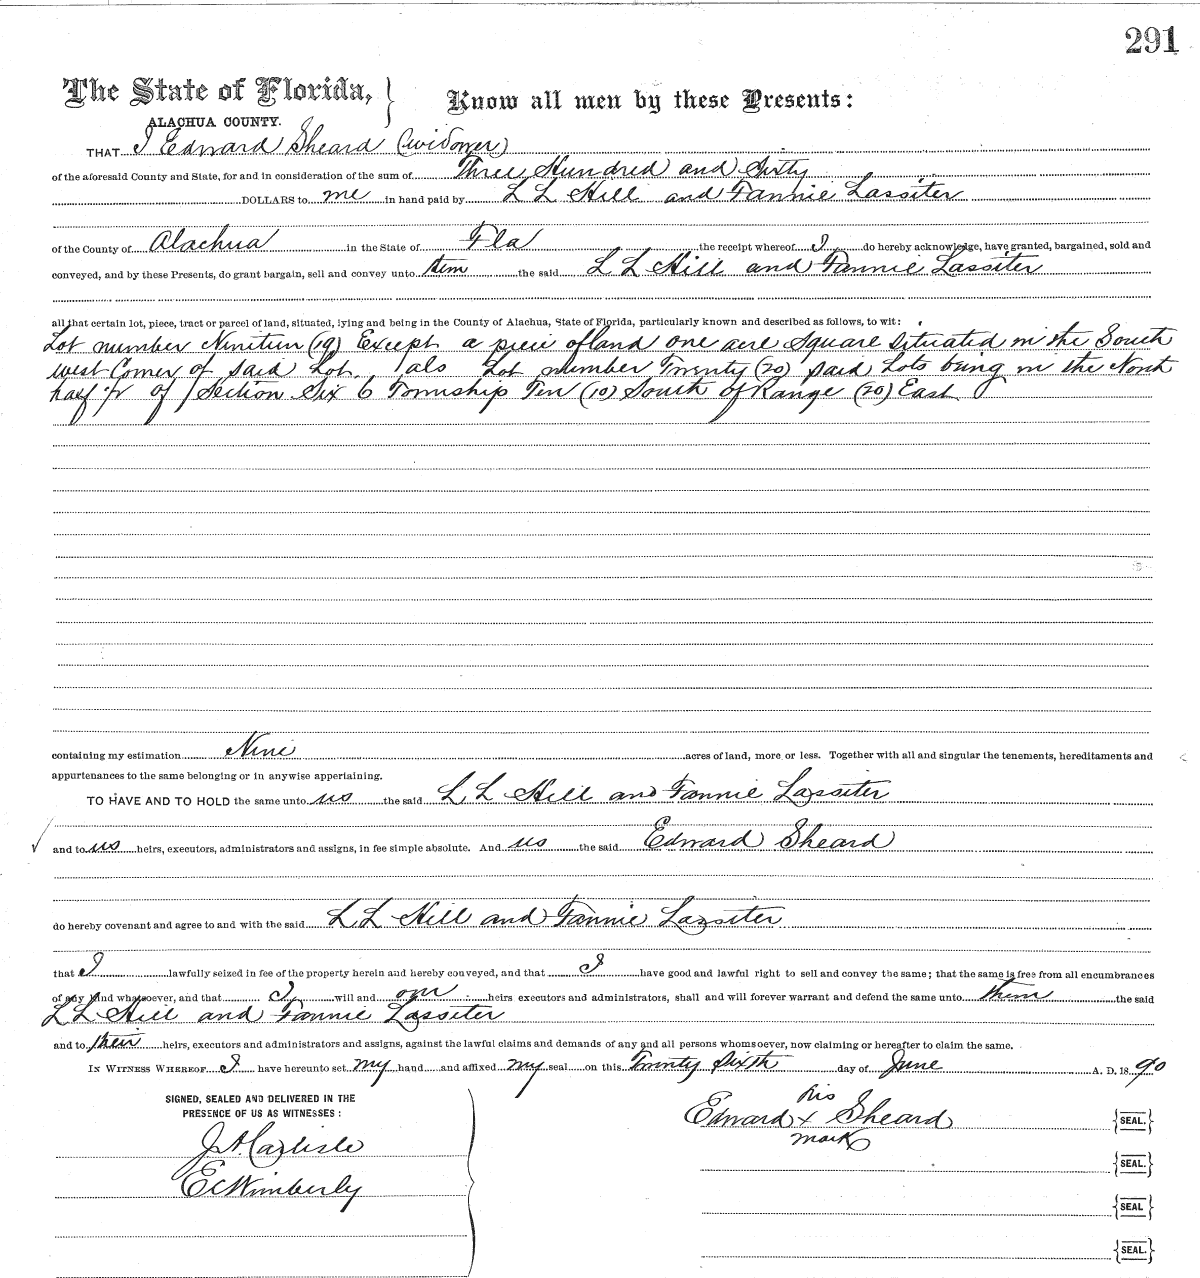 291
The State of Florida,
ALACHUA COUNTY.
Know all men by these Presents:
THAT I Edward Sheard (widower)
of the aforesaid County and State, for and in consideration of the sum of Three Hundred and Sixty
DOLLARS to me in hand paid by L L Hill and Fannie Lassiter
of the County of Alachua in the State of Fla the receipt whereof I do hereby acknowledge, have granted, bargained, sold and
conveyed, and by these Presents, do grant bargain, sell and convey unto them the said L L Hill and Fannie Lassiter
all that certain lot, piece, tract or parcel of land, situated, lying and being in the County of Alachua, State of Florida, particularly known and described as follows, to wit:
Lot number Nineteen (19) Except a piece of land one acre Square situated in the South
west Corner of said Lot. also Lot number Twenty (20) said Lots being in the North
half of Section Six 6 Township Ten (10) South of Range (20) East
containing my estimation Nine acres of land, more or less. Together with all and singular the tenements, hereditaments and
appurtenances to the same belonging or in anywise appertaining.
TO HAVE AND TO HOLD the same unto us the said L L Hill and Fannie Lassiter
and to us heirs, executors, administrators and assigns, in fee simple absolute. And us the said Edward Sheard
do hereby covenant and agree to and with the said L L Hill and Fannie Lassiter
that I lawfully seized in fee of the property herein and hereby conveyed, and that I have good and lawful right to sell and convey the same; that the same is free from all encumbrances
of any kind whatsoever, and that I will and our heirs executors and administrators, shall and will forever warrant and defend the same unto them the said
L L Hill and Fannie Lassiter
and to their heirs, executors and administrators and assigns, against the lawful claims and demands of any and all persons whomsoever, now claiming or hereafter to claim the same.
IN WITNESS WHEREOF I have hereunto set my hand and affixed my seal on this Twenty Sixth day of June A. D. 18 90
SIGNED, SEALED AND DELIVERED IN THE
PRESENCE OF US AS WITNESSES:
his
Edward x Sheard SEAL.
mark
J A Carlisle
SEAL.
E C Wimberly
SEAL
SEAL.